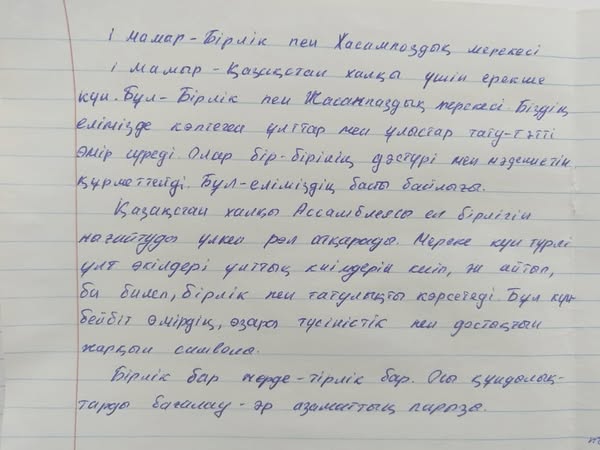 1 мамар - Бірлік пен Хасампоздық мерекесі
1 мамыр - Қазақстан халқы үшін ерекше
күн. Бұл - Бірлік пен Жасампаздық мерекесі. Біздің
елімізде көптеген ұлттар мен ұлыстар тату-тәтті
өмір сүреді. Олар бір-бірінің дәстүрі мен мәдениетін
құрметтейді. Бұл - еліміздің басты байлығы.
Қазақстан халқы Ассамблеясы ел бірлігін
нығайтуды үлкен рөл атқарады. Мереке күні түрлі
ұлт өкілдері ұлттық киімдерін киіп, ән айтып,
би билеп, бірлік пен татулықты көрсетеді. Бұл күн-
бейбіт өмірдің, өзара түсіністік пен достықтың
жарқын символы.
Бірлік бар жерде - тірлік бар. Осы құндылық-
тарды бағалау - әр азаматтың парызы.